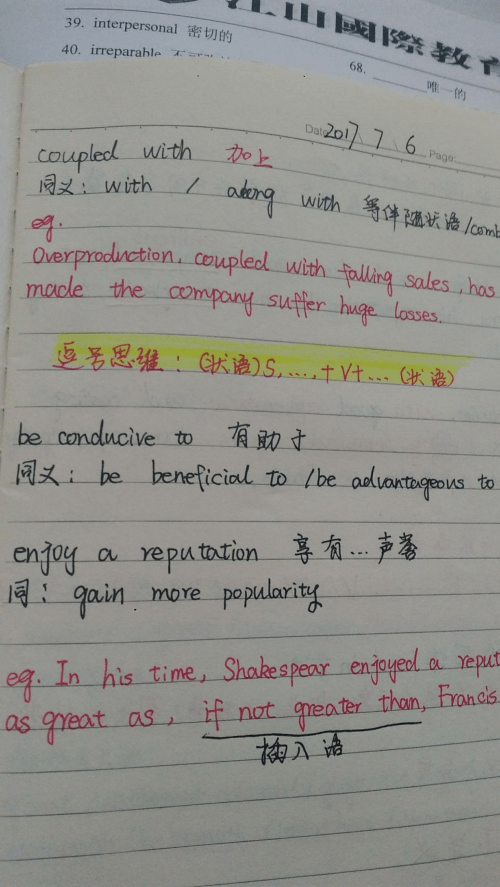 江山國際教育
39. interpersonal 密切的
40. irreparable
68. 唯一的
Date 2017 \ 7 \ 6 Page:
coupled with 加上
同义: with / along with 等伴随状语/comb
eg.
Overproduction, coupled with falling sales, has
made the company suffer huge losses.
逗号思维: (状语) S, ..., + V + ... (状语)
be conducive to 有助于
同义: be beneficial to / be advantageous to
enjoy a reputation 享有...声誉
同: gain more popularity
eg. In his time, Shakespear enjoyed a reput
as great as, if not greater than, Francis
插入语